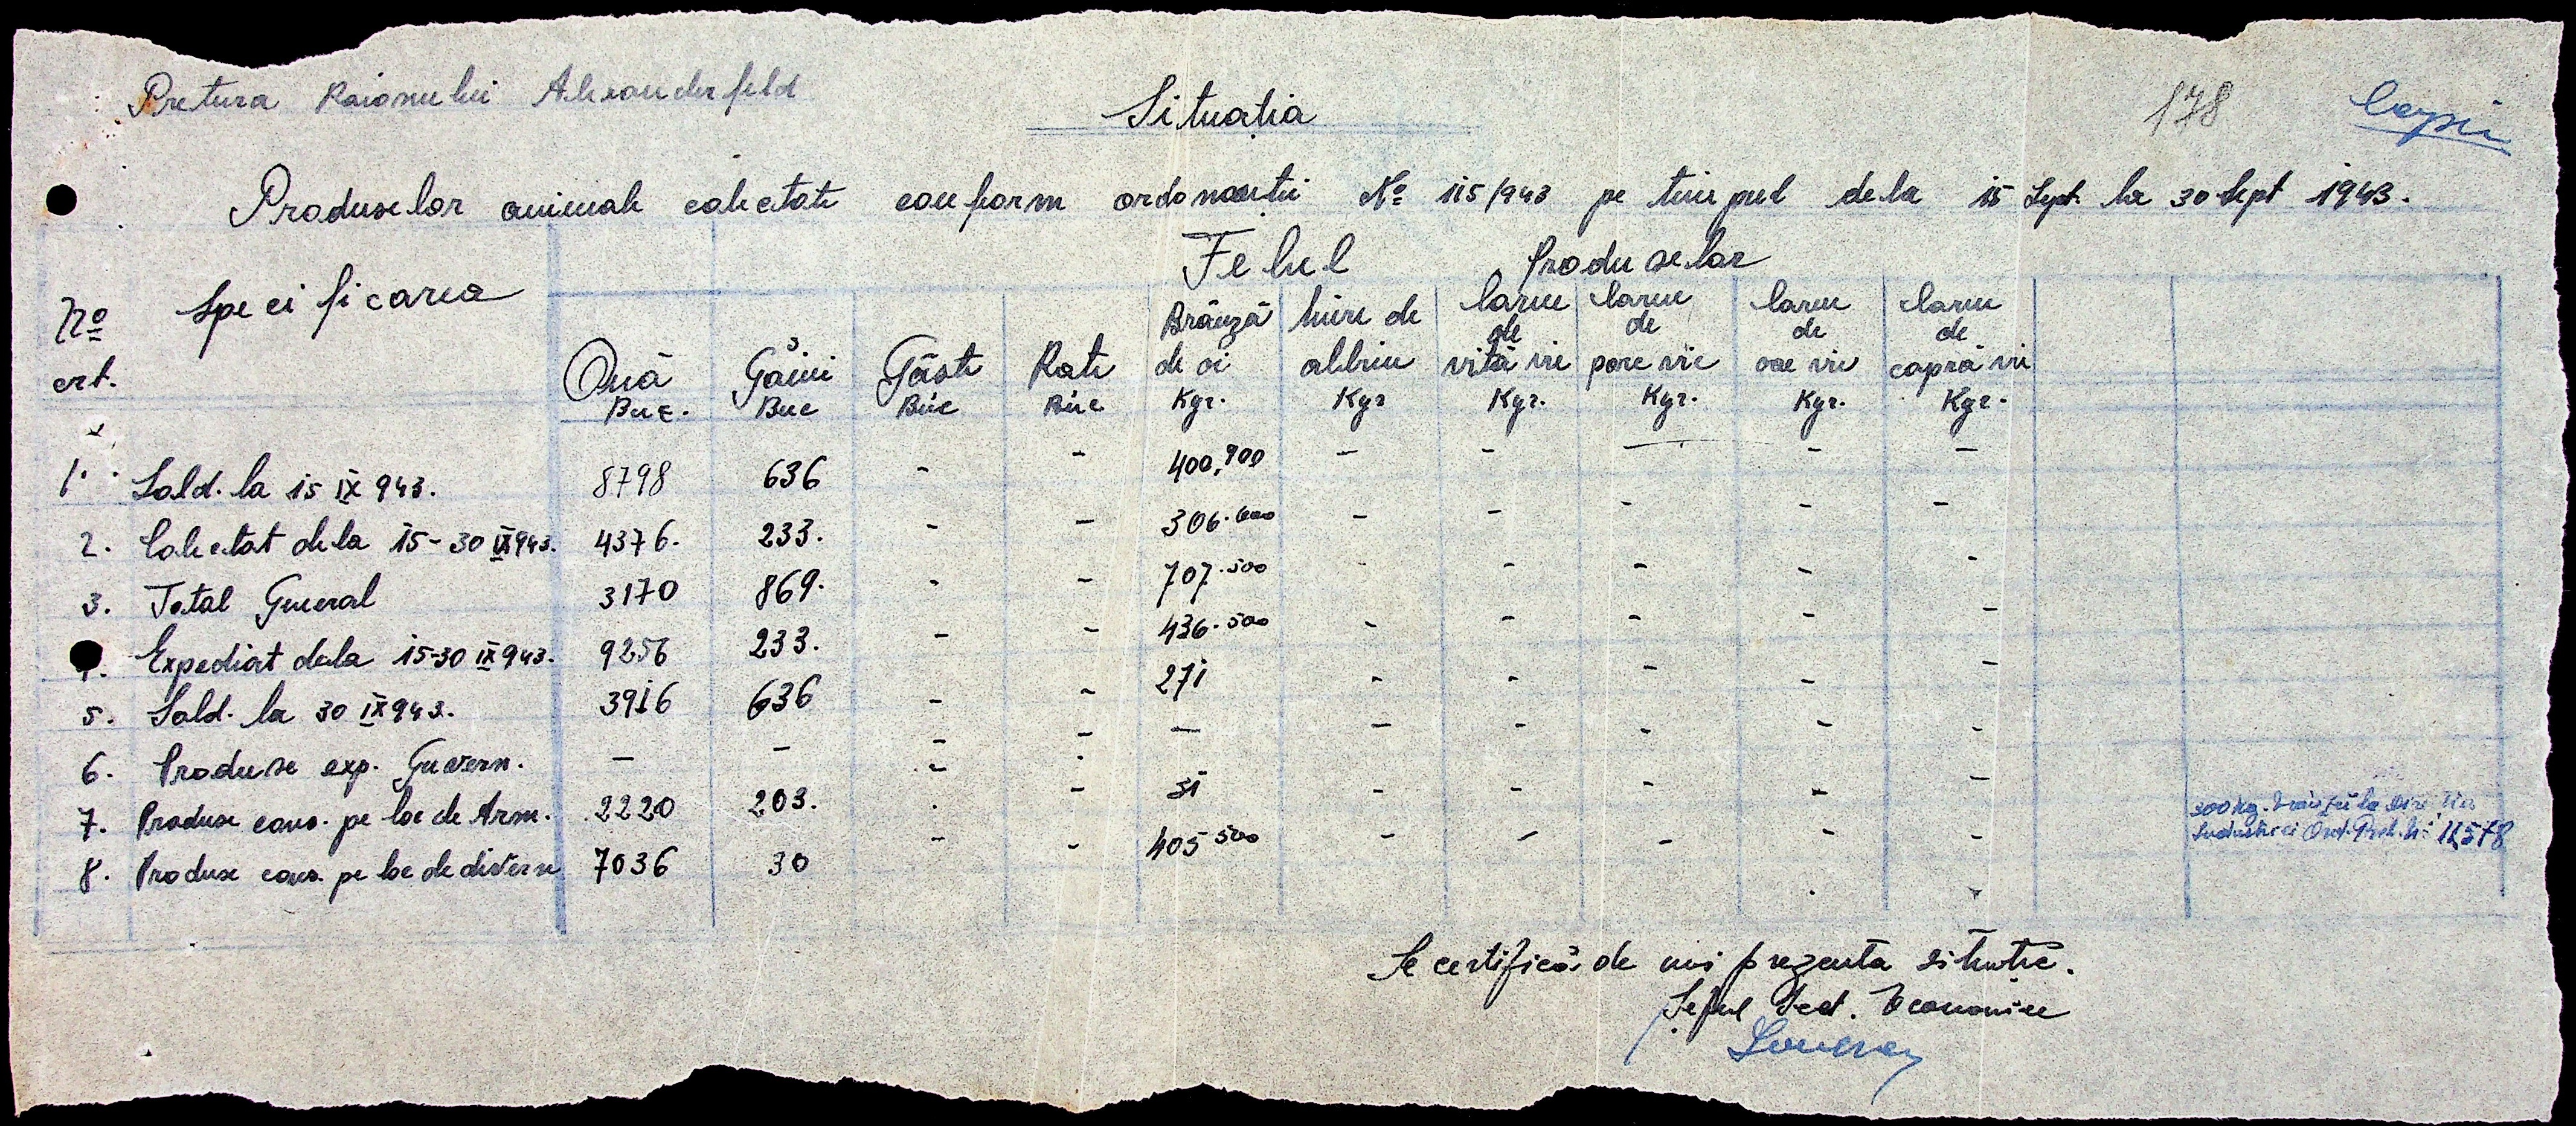 Pretura Raionului Alexanderfeld
178
Copie
Situatia
Produselor animale colectate conform ordonantii No 115/943 pe timpul dela 15 Sept. la 30 Sept 1943.
No crt.
Specificarea
Felul Produselor
Ouă Buc.
Găini Buc
Gâste Buc
Rate Buc
Brânză de oi Kgr.
Miere de albine Kgr
Carne de vită vie Kgr.
Carne de porc vie Kgr.
Carne de oae vie Kgr.
Carne de capră vie Kgr.
1. Sold. la 15 IX 943. 8798 636 - - 400,900 - - - - -
2. Colectat dela 15-30 IX 943. 4376. 233. - - 306.600 - - - - -
3. Total General 3170 869. - - 707.500 - - - - -
4. Expediat dela 15-30 IX 943. 9256 233. - - 436.500 - - - - -
5. Sold. la 30 IX 943. 3916 636 - - 271 - - - - -
6. Produse exp. Guvern. - - - - - - - - - -
7. Produse cons. pe loc de Arm. 2220 203. - - 31 - - - - -
8. Produse cons. pe loc de diverse 7036 30 - - 405 500 - - - - -
300 kg. la
Industriei Ord. No 11,578
Se certifică de noi prezenta situatie.
Seful Sect. Economice